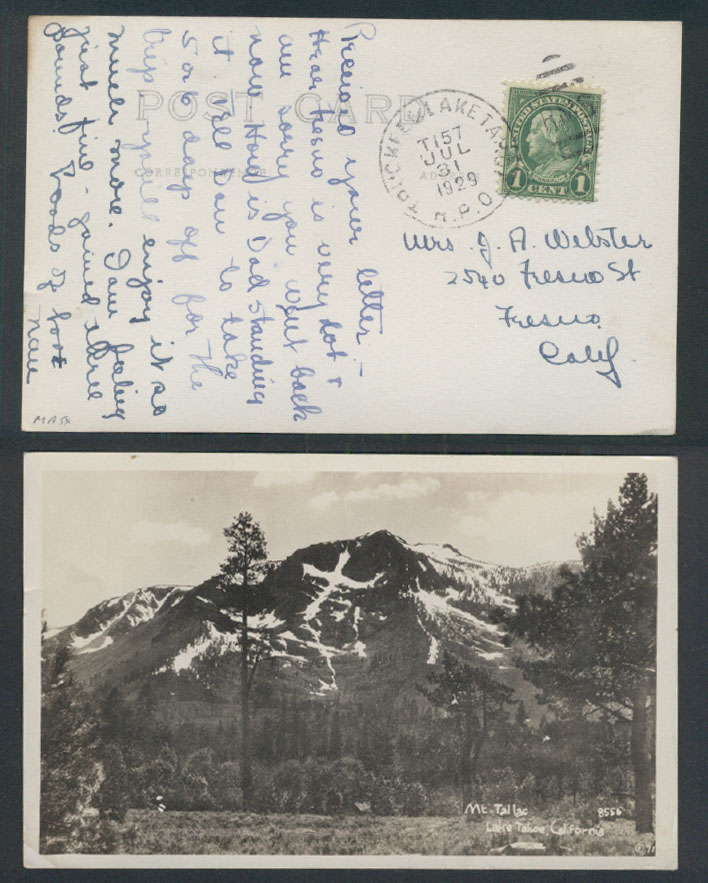 POST CARD
CORRESPONDENCE
ADDRESS
Received your letter –
Hear Fresno is very hot &
am sorry you went back
now. How is Dad standing
it. Tell Dan to take
5 or 6 days off for the
trip & you'll enjoy it so
much more. I am feeling
just fine – gained three
pounds. Loads of love
TRUCKEE & LAKE TAHOE
T157
JUL
31
1929
R.P.O.
UNITED STATES POSTAGE
1 CENT 1
Mrs. J. A. Webster
2540 Fresno St
Fresno
Calif
Mt. Tallac 8556
Lake Tahoe California